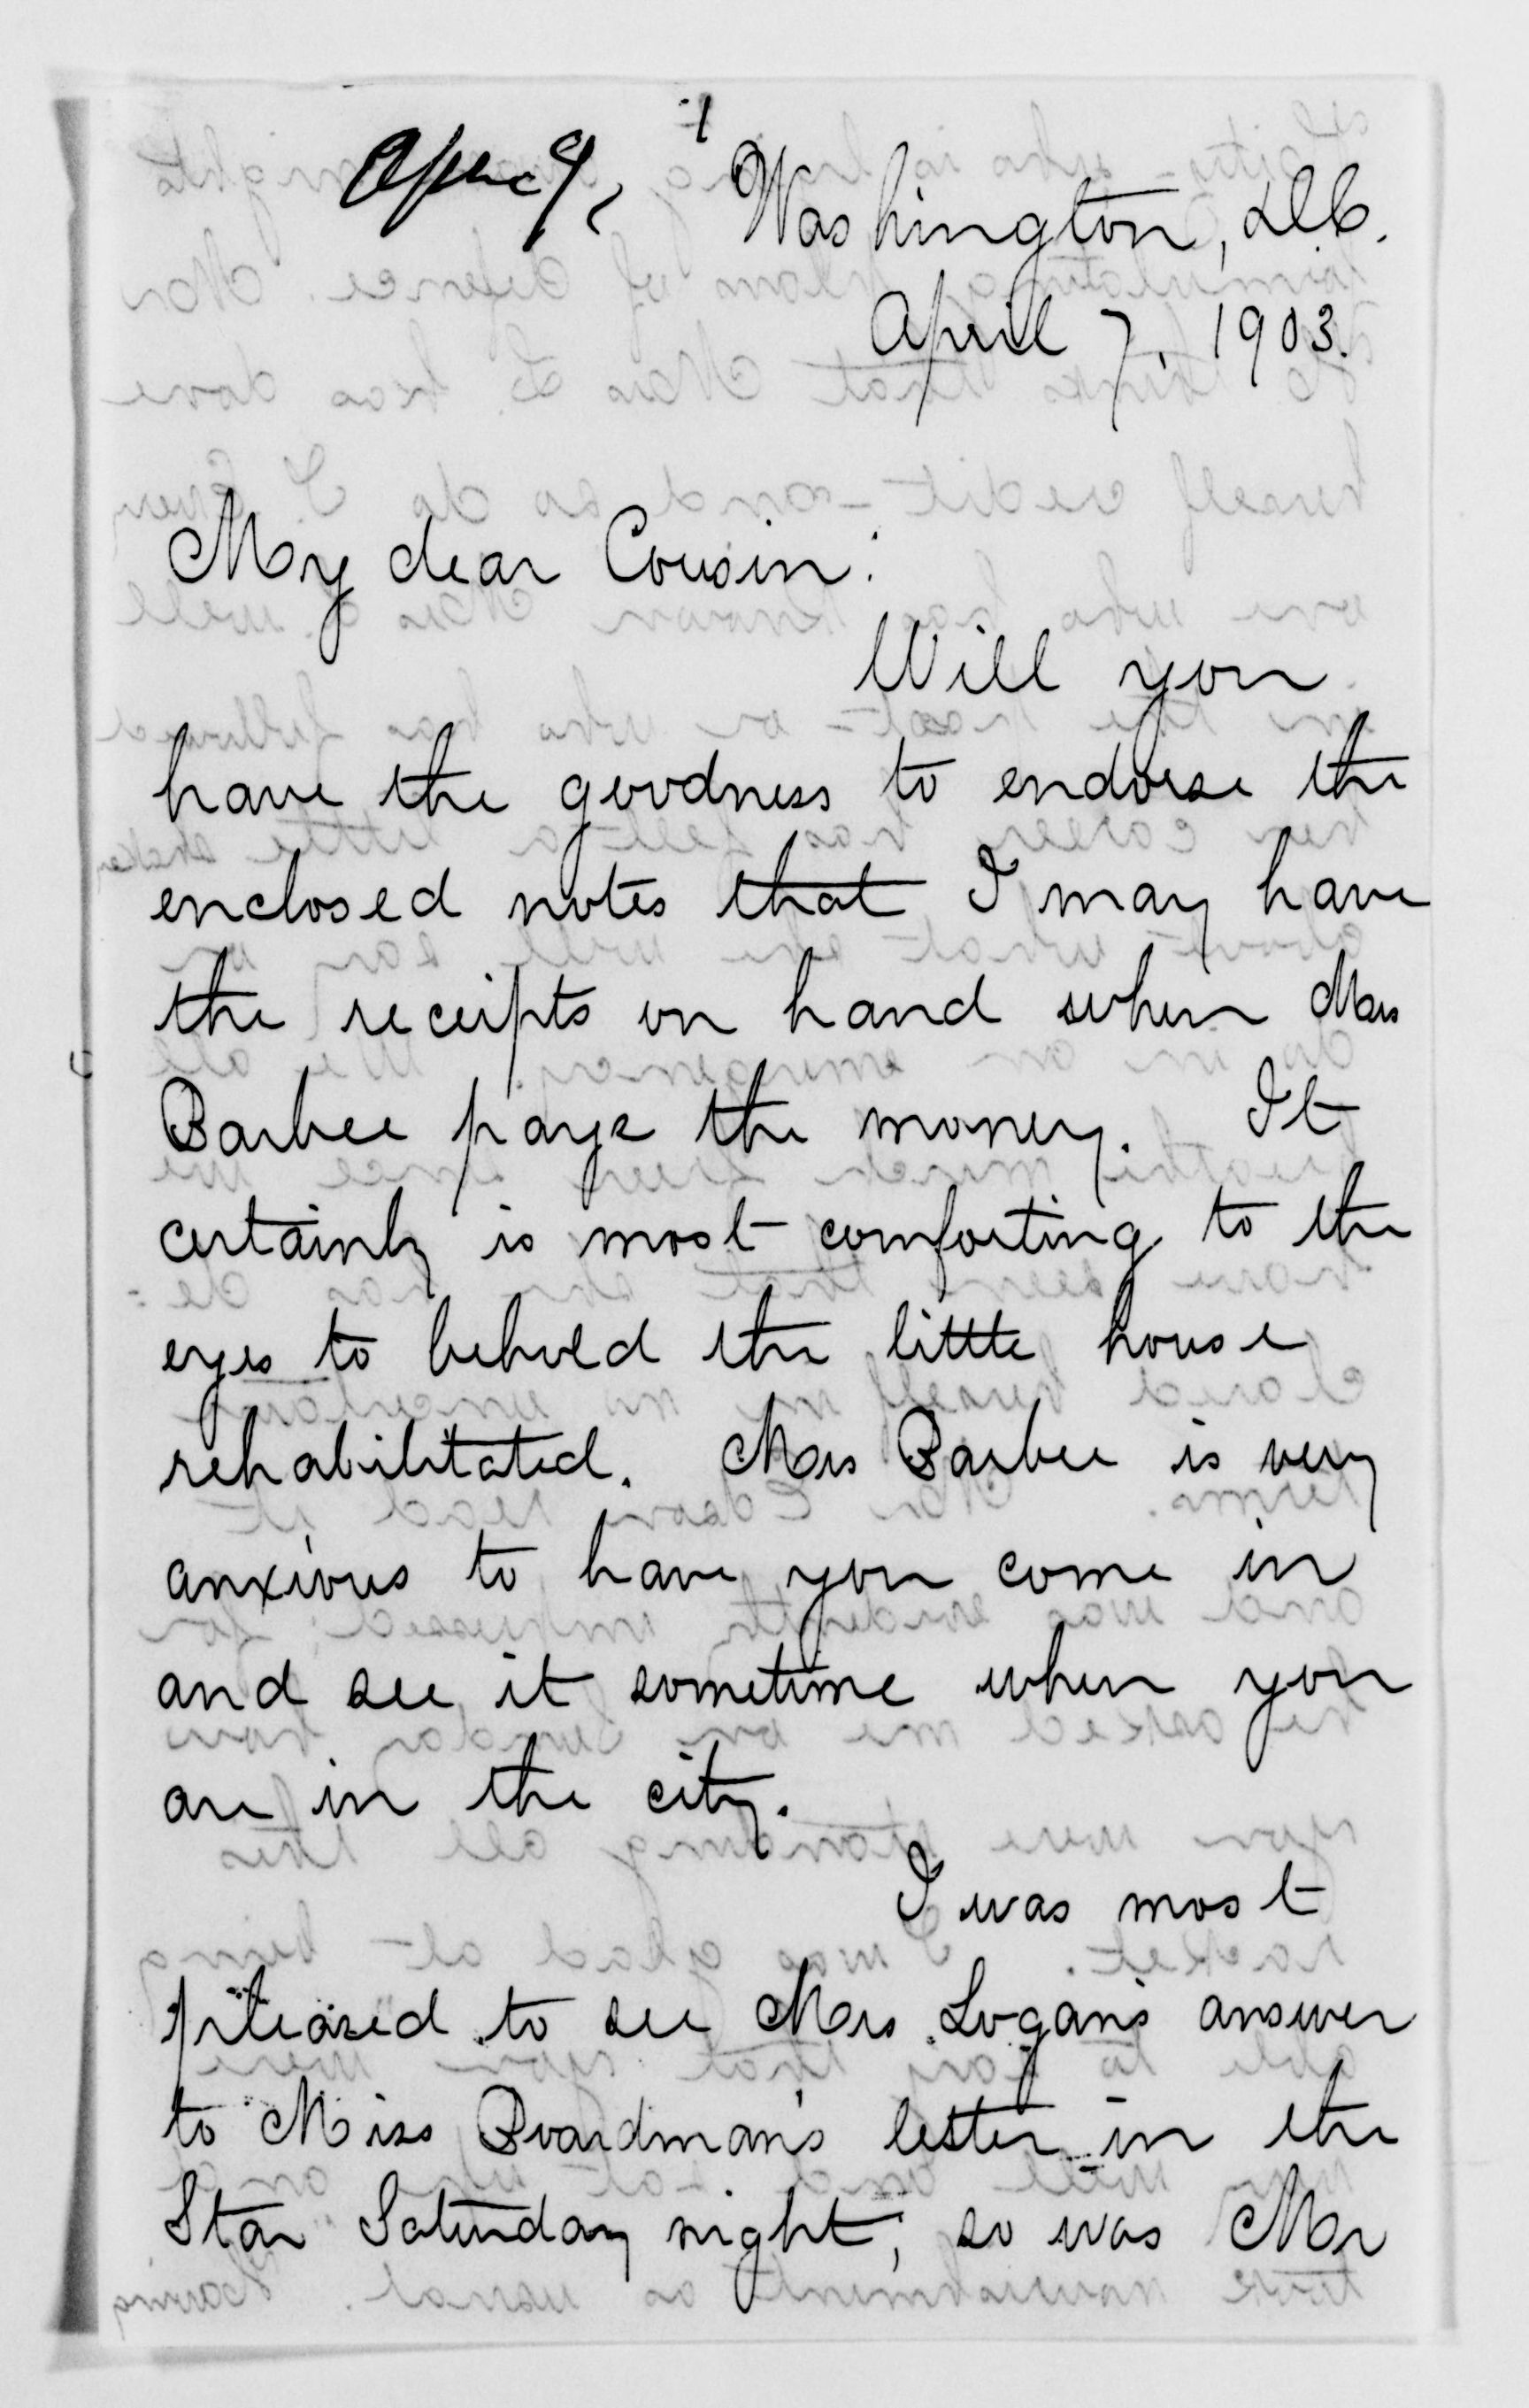 Apr 9,
Washington, D.C.
April 7, 1903.
My dear Cousin:
Will you
have the goodness to endorse the
enclosed notes that I may have
the receipts on hand when Mrs
Barbee pays the money. It
certainly is most comforting to the
eyes to behold the little house
rehabilitated. Mrs Barbee is very
anxious to have you come in
and see it sometime when you
are in the city.
I was most
pleased to see Mrs Logan's answer
to Miss Boardman's letter in the
Star Saturday night; so was Mr